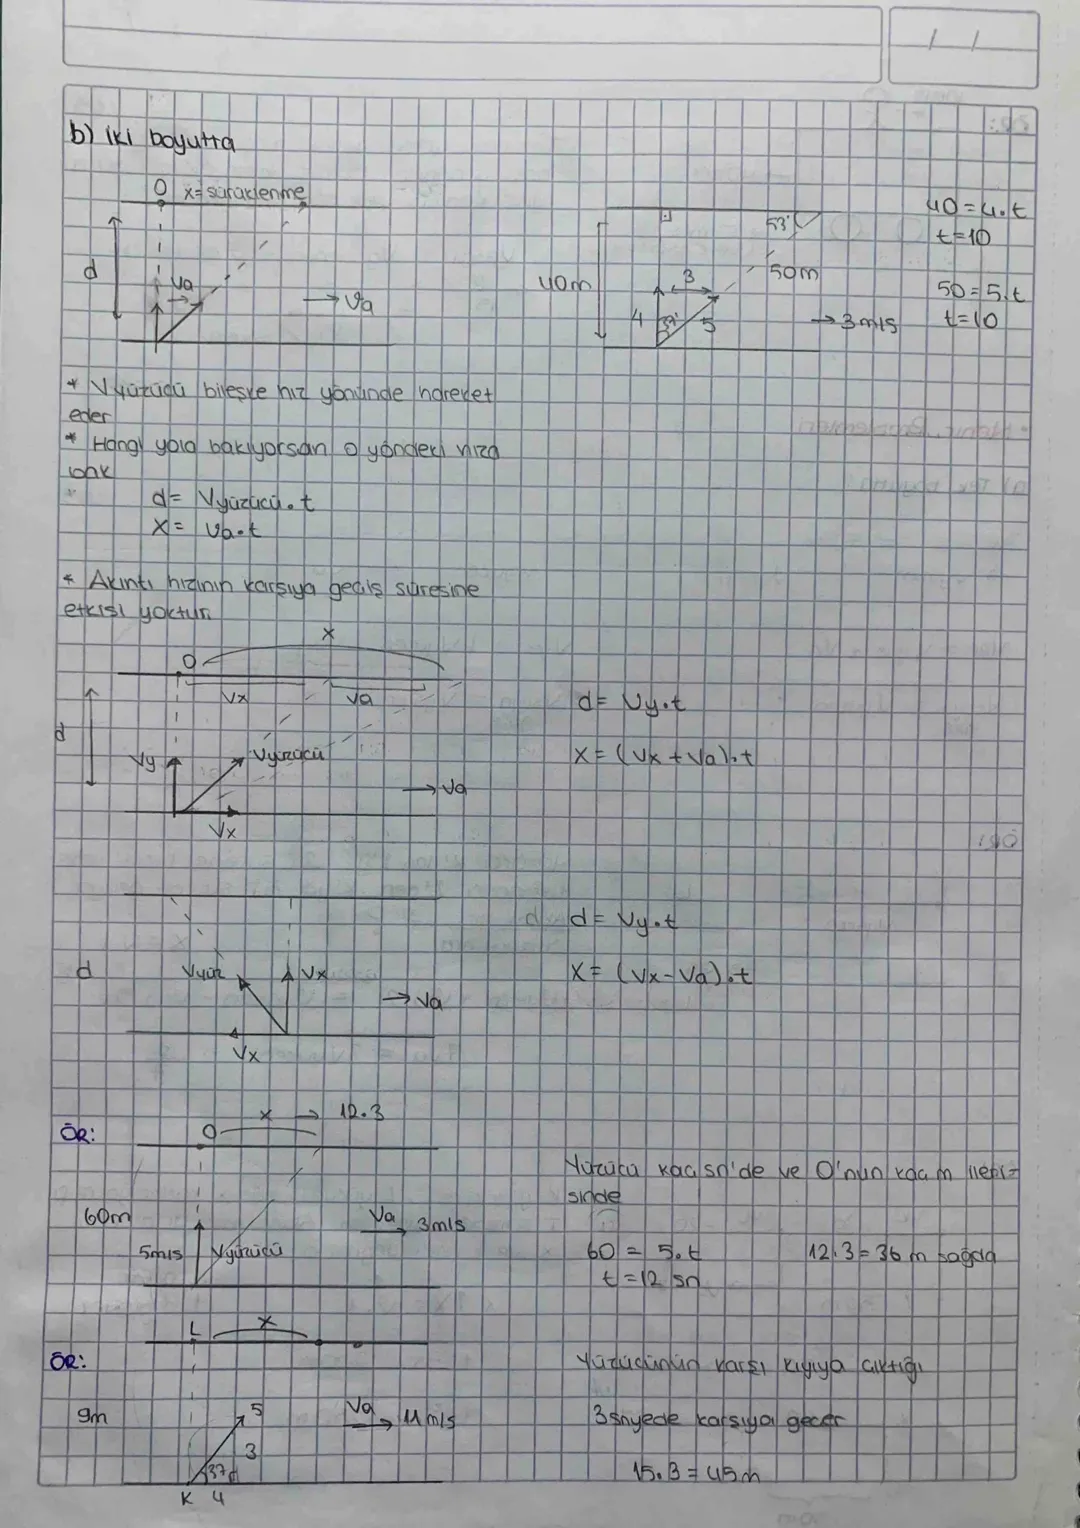 / /
b) iki boyutta
O x= sürüklenme
d
Va
→ Va
40m
53°
50m
3
4
5
→ 3 m/s
40 = 4.t
t=10
50 = 5.t
t=10
* Vyüzücü bileşke hız yönünde hareket
eder
* Hangi yola bakıyorsan o yöndeki hıza
bak
d= Vyüzücü.t
x= Va.t
* Akıntı hızının karşıya geçiş süresine
etkisi yoktur.
x
O
Vx Va
d
Vy Vyüzücü
→ Va
Vx
d= Vy.t
x= (Vx + Va).t
d
Vyüz Vx
→ Va
Vx
d= Vy.t
x= (Vx-Va).t
ÖR:
x → 12.3
O
60m
Va 3m/s
5m/s Vyüzücü
Yüzücü kaç sn'de ve O'nun kaç m
sinde
60 = 5.t
t=12 sn
12.3=36 m sağda
ÖR:
L x
9m
5
3
37°
K 4
Va 11 m/s
Yüzücünün karşı kıyıya çıktığı
3 snyede karşıya geçer
15.3=45m